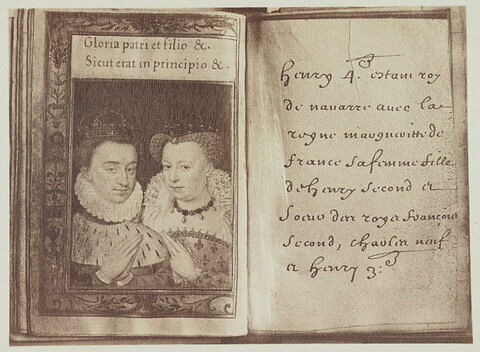 Gloria patri et filio &.
Sicut erat in principio &.
henry 4.e estant roy
de navarre avec la
reyne margueritte de
france sa femme fille
de henry second et
soeur des roys françois
second, charles neuf
et henry 3.e